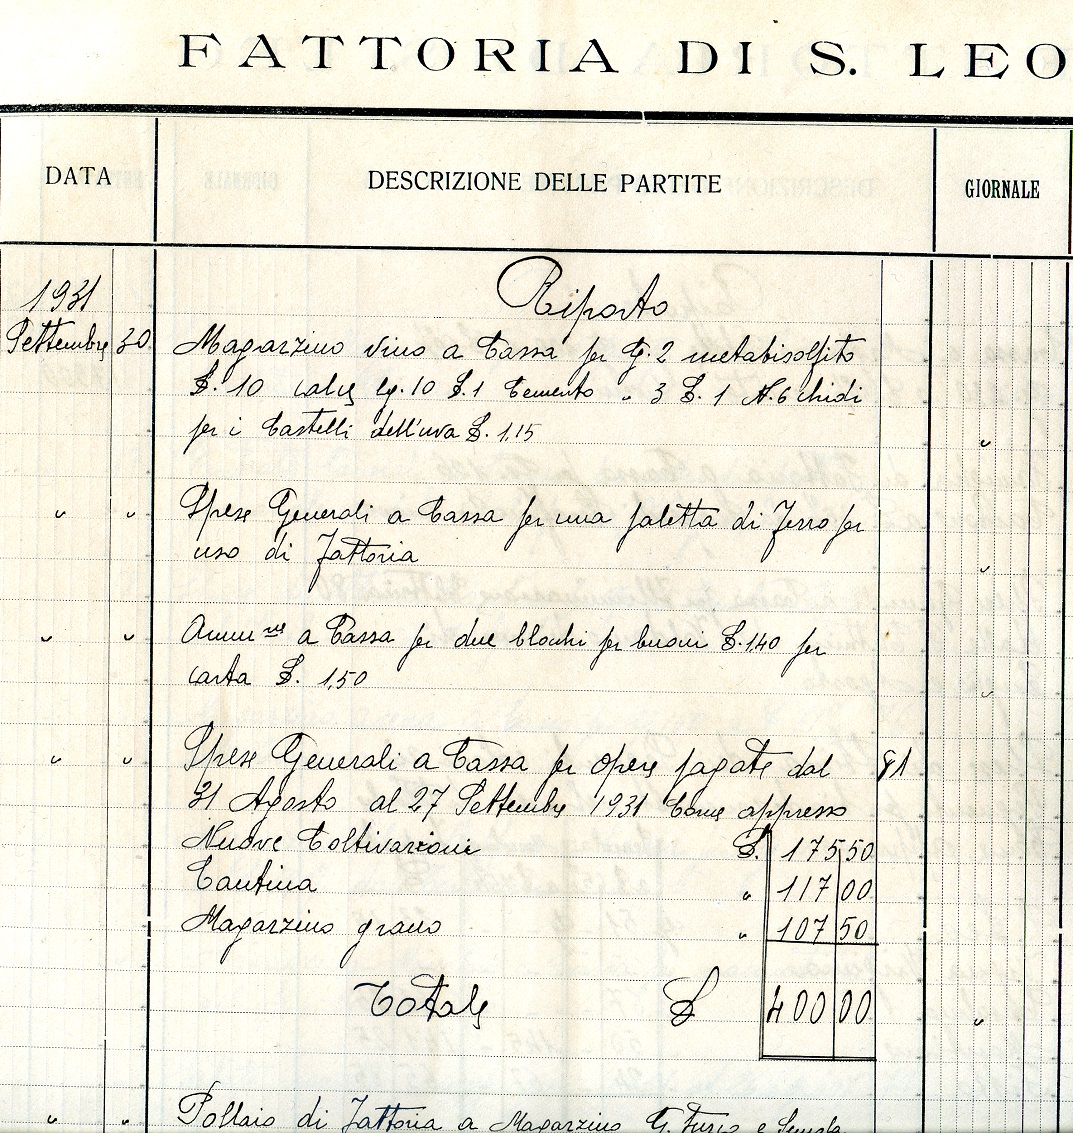 FATTORIA DI S. LEO
DATA DESCRIZIONE DELLE PARTITE GIORNALE
Riporto
1931
Settembre 30 Magazzino vino a Cassa per G. 2 metabisolfito
£. 10 calce Kg. 10 £. 1 Cemento " 3 £. 1 N. 6 chiodi
per i Castelli dell'uva £. 1,15 "
" " Spese Generali a Cassa per una paletta di ferro per
uso di fattoria "
" " Amm.ne a Cassa per due blocchi per buoni £. 1,40 per
carta £. 1,50 "
" " Spese Generali a Cassa per opere pagate dal 81
31 Agosto al 27 Settembre 1931 Come appresso
Nuove Coltivazioni £. 175 50
Cantina " 117 00
Magazzino grano " 107 50
Totale £ 400 00 "
" " Pollaio di fattoria a Magazzino G.